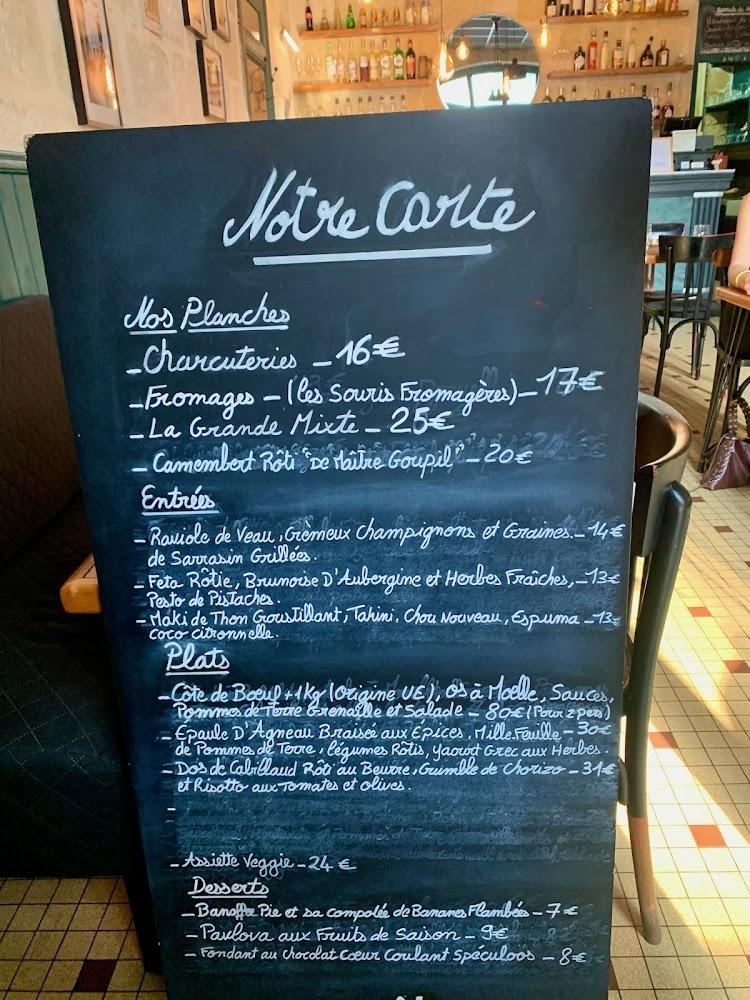 Notre Carte
Nos Planches
- Charcuteries - 16€
- Fromages - (les Souris Fromagères) - 17€
- La Grande Mixte - 25€
- Camembert Rôti "De Maître Goupil" - 20€
Entrées
- Raviole de Veau, Crèmeux Champignons et Graines - 14€
de Sarrasin Grillées.
- Feta Rôtie, Brunoise D'Aubergine et Herbes Fraîches, - 13€
Pesto de Pistaches.
- Maki de Thon Croustillant, Tahini, Chou Nouveau, Espuma - 13€
coco citronnelle.
Plats
- Côte de Bœuf +1Kg (Origine UE), Os à Moelle, Sauces,
Pommes de Terre Grenaille et Salade - 80€ (Pour 2 pers)
- Epaule D'Agneau Braisée aux Epices, Mille Feuille - 30€
de Pommes de Terre, légumes Rôtis, Yaourt Grec aux Herbes
- Dos de Cabillaud Rôti au Beurre, Crumble de Chorizo - 31€
et Risotto aux Tomates et olives.
-
- Assiette Veggie - 24 €
Desserts
- Banoffee Pie et sa compotée de Bananes Flambées - 7€
- Pavlova aux Fruits de Saison - 9€
- Fondant au chocolat Cœur Coulant Spéculoos - 8€